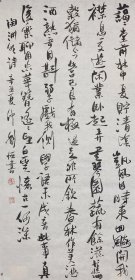 藹藹堂前林中夏貯清陰凱風因時來回飆開我
襟息交遊閑業卧起弄書琴園蔬有餘滋舊
穀猶儲今營己良有極過足非所欽舂秫作美酒
酒熟吾自斟弱子戲我側學語未成音此事真
復樂聊用忘華簪遥遥望白雲懷古一何深
陶淵明詩